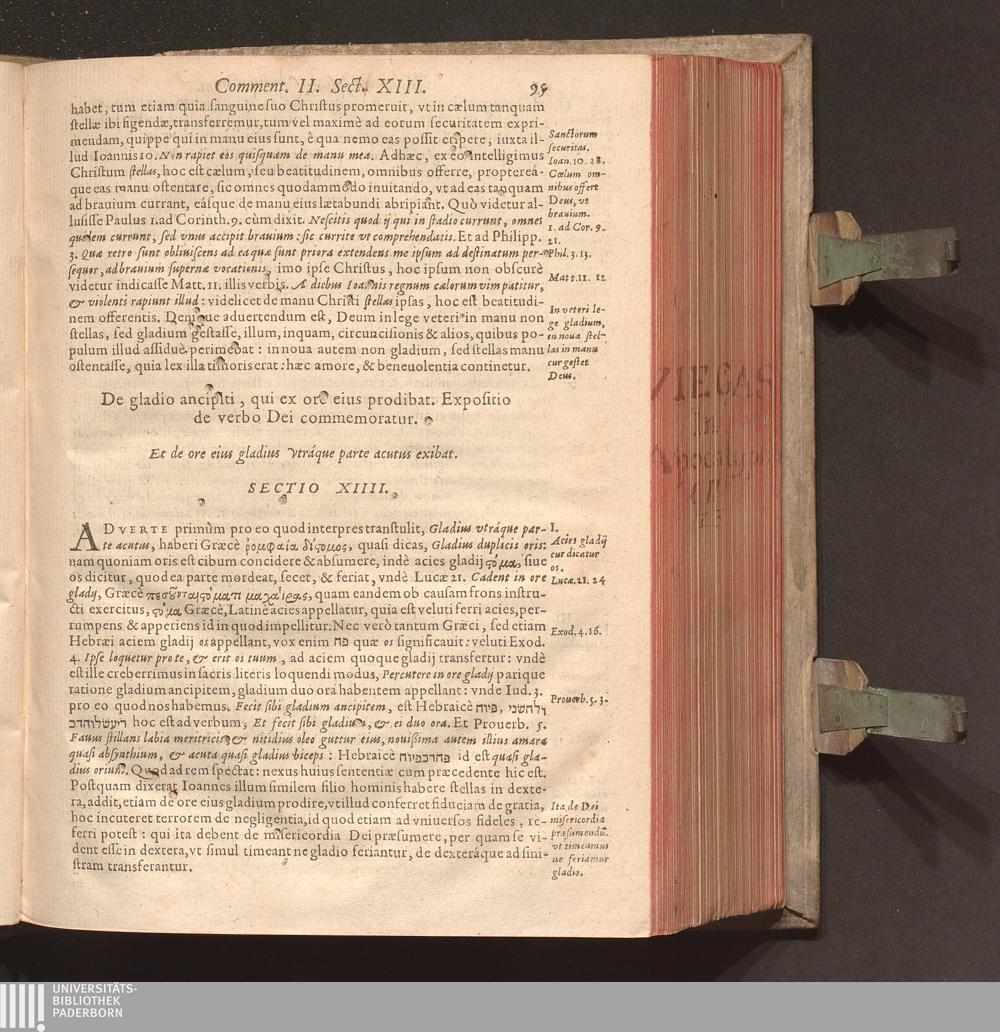 Comment. II. Sect. XIII. 95
habet, tum etiam quia sanguine suo Christus promeruit, vt in cælum tanquam
stellæ ibi figendæ, transferremur, tum vel maximè ad eorum securitatem expri-
mendam, quippe qui in manu eius sunt, è qua nemo eas possit eripere, iuxta il-
lud Ioannis 10. Non rapiet eos quisquam de manu mea. Adhæc, ex eo intelligimus
Christum stellas, hoc est cælum, seu beatitudinem, omnibus offerre, proptereá-
que eas manu ostentare, sic omnes quodammodo inuitando, vt ad eas tanquam
ad brauium currant, eásque de manu eius lætabundi abripiant. Quò videtur al-
lusisse Paulus 1. ad Corinth. 9. cùm dixit. Nescitis quod ij qui in stadio currunt, omnes
quidem currunt, sed vnus accipit brauium: sic currite vt comprehendatis. Et ad Philipp.
3. Quæ retro sunt obliuiscens ad ea quæ sunt priora extendens me ipsum ad destinatum per-
sequor, ad brauium supernæ vocationis, imo ipse Christus, hoc ipsum non obscurè
videtur indicasse Matt. 11. illis verbis. A diebus Ioannis regnum cælorum vim patitur,
& violenti rapiunt illud: videlicet de manu Christi stellas ipsas, hoc est beatitudi-
nem offerentis. Denique aduertendum est, Deum in lege veteri in manu non
stellas, sed gladium gestasse, illum, inquam, circuncisionis & alios, quibus po-
pulum illud assiduè perimebat: in noua autem non gladium, sed stellas manu
ostentasse, quia lex illa timoris erat: hæc amore, & beneuolentia continetur.
Sanctorum
securitas.
Ioan. 10. 28.
Cælum om-
nibus offert
Deus, vt
brauium.
1. ad Cor. 9.
21.
Phil. 3. 13.
Matt. 11. 12
In veteri le-
ge gladium,
in noua stel-
las in manu
cur gestet
Deus.
De gladio ancipiti, qui ex ore eius prodibat. Expositio
de verbo Dei commemoratur.
Et de ore eius gladius vtráque parte acutus exibat.
SECTIO XIIII.
ADVERTE primùm pro eo quod interpres transtulit, Gladius vtráque par-
te acutus, haberi Græcè ῥομφαία δίςομος, quasi dicas, Gladius duplicis oris:
nam quoniam oris est cibum concidere & absumere, indè acies gladij ςόμα, siue
os dicitur, quod ea parte mordeat, secet, & feriat, vndè Lucæ 21. Cadent in ore
gladij, Græcè πεσοῦνται ςόματι μαχαίρας, quam eandem ob causam frons instru-
cti exercitus, ςόμα Græcè, Latinè acies appellatur, quia est veluti ferri acies, per-
rumpens & apperiens id in quod impellitur. Nec verò tantum Græci, sed etiam
Hebræi aciem gladij os appellant, vox enim פה quæ os significauit: veluti Exod.
4. Ipse loquetur pro te, & erit os tuum, ad aciem quoque gladij transfertur: vndè
est ille creberrimus in sacris literis loquendi modus, Percutere in ore gladij parique
ratione gladium ancipitem, gladium duo ora habentem appellant: vnde Iud. 3.
pro eo quod nos habemus. Fecit sibi gladium ancipitem, est Hebraicè
hoc est ad verbum; Et fecit sibi gladium, & ei duo ora. Et Prouerb. 5.
Fauus stillans labia meretricis, & nitidius oleo guttur eius, nouißima autem illius amara
quasi absynthium, & acuta quasi gladius biceps: Hebraicè id est quasi gla-
dius orium. Quod ad rem spectat: nexus huius sententiæ cum præcedente hic est.
Postquam dixerat Ioannes illum similem filio hominis habere stellas in dexte-
ra, addit, etiam de ore eius gladium prodire, vt illud conferret fiduciam de gratia,
hoc incuteret terrorem de negligentia, id quod etiam ad vniuersos fideles, re-
ferri potest: qui ita debent de misericordia Dei præsumere, per quam se vi-
dent esse in dextera, vt simul timeant ne gladio feriantur, de dexteráque ad sini-
stram transferantur.
I.
Acies gladij
cur dicatur
os.
Lucæ. 21. 24
Exod. 4. 16.
Prouerb. 5. 3.
Ita de Dei
misericordia
præsumendū.
vt timeamus
ne feriamur
gladio.
VIEGAS
in
Apocalyps
UNIVERSITÄTS-
BIBLIOTHEK
PADERBORN